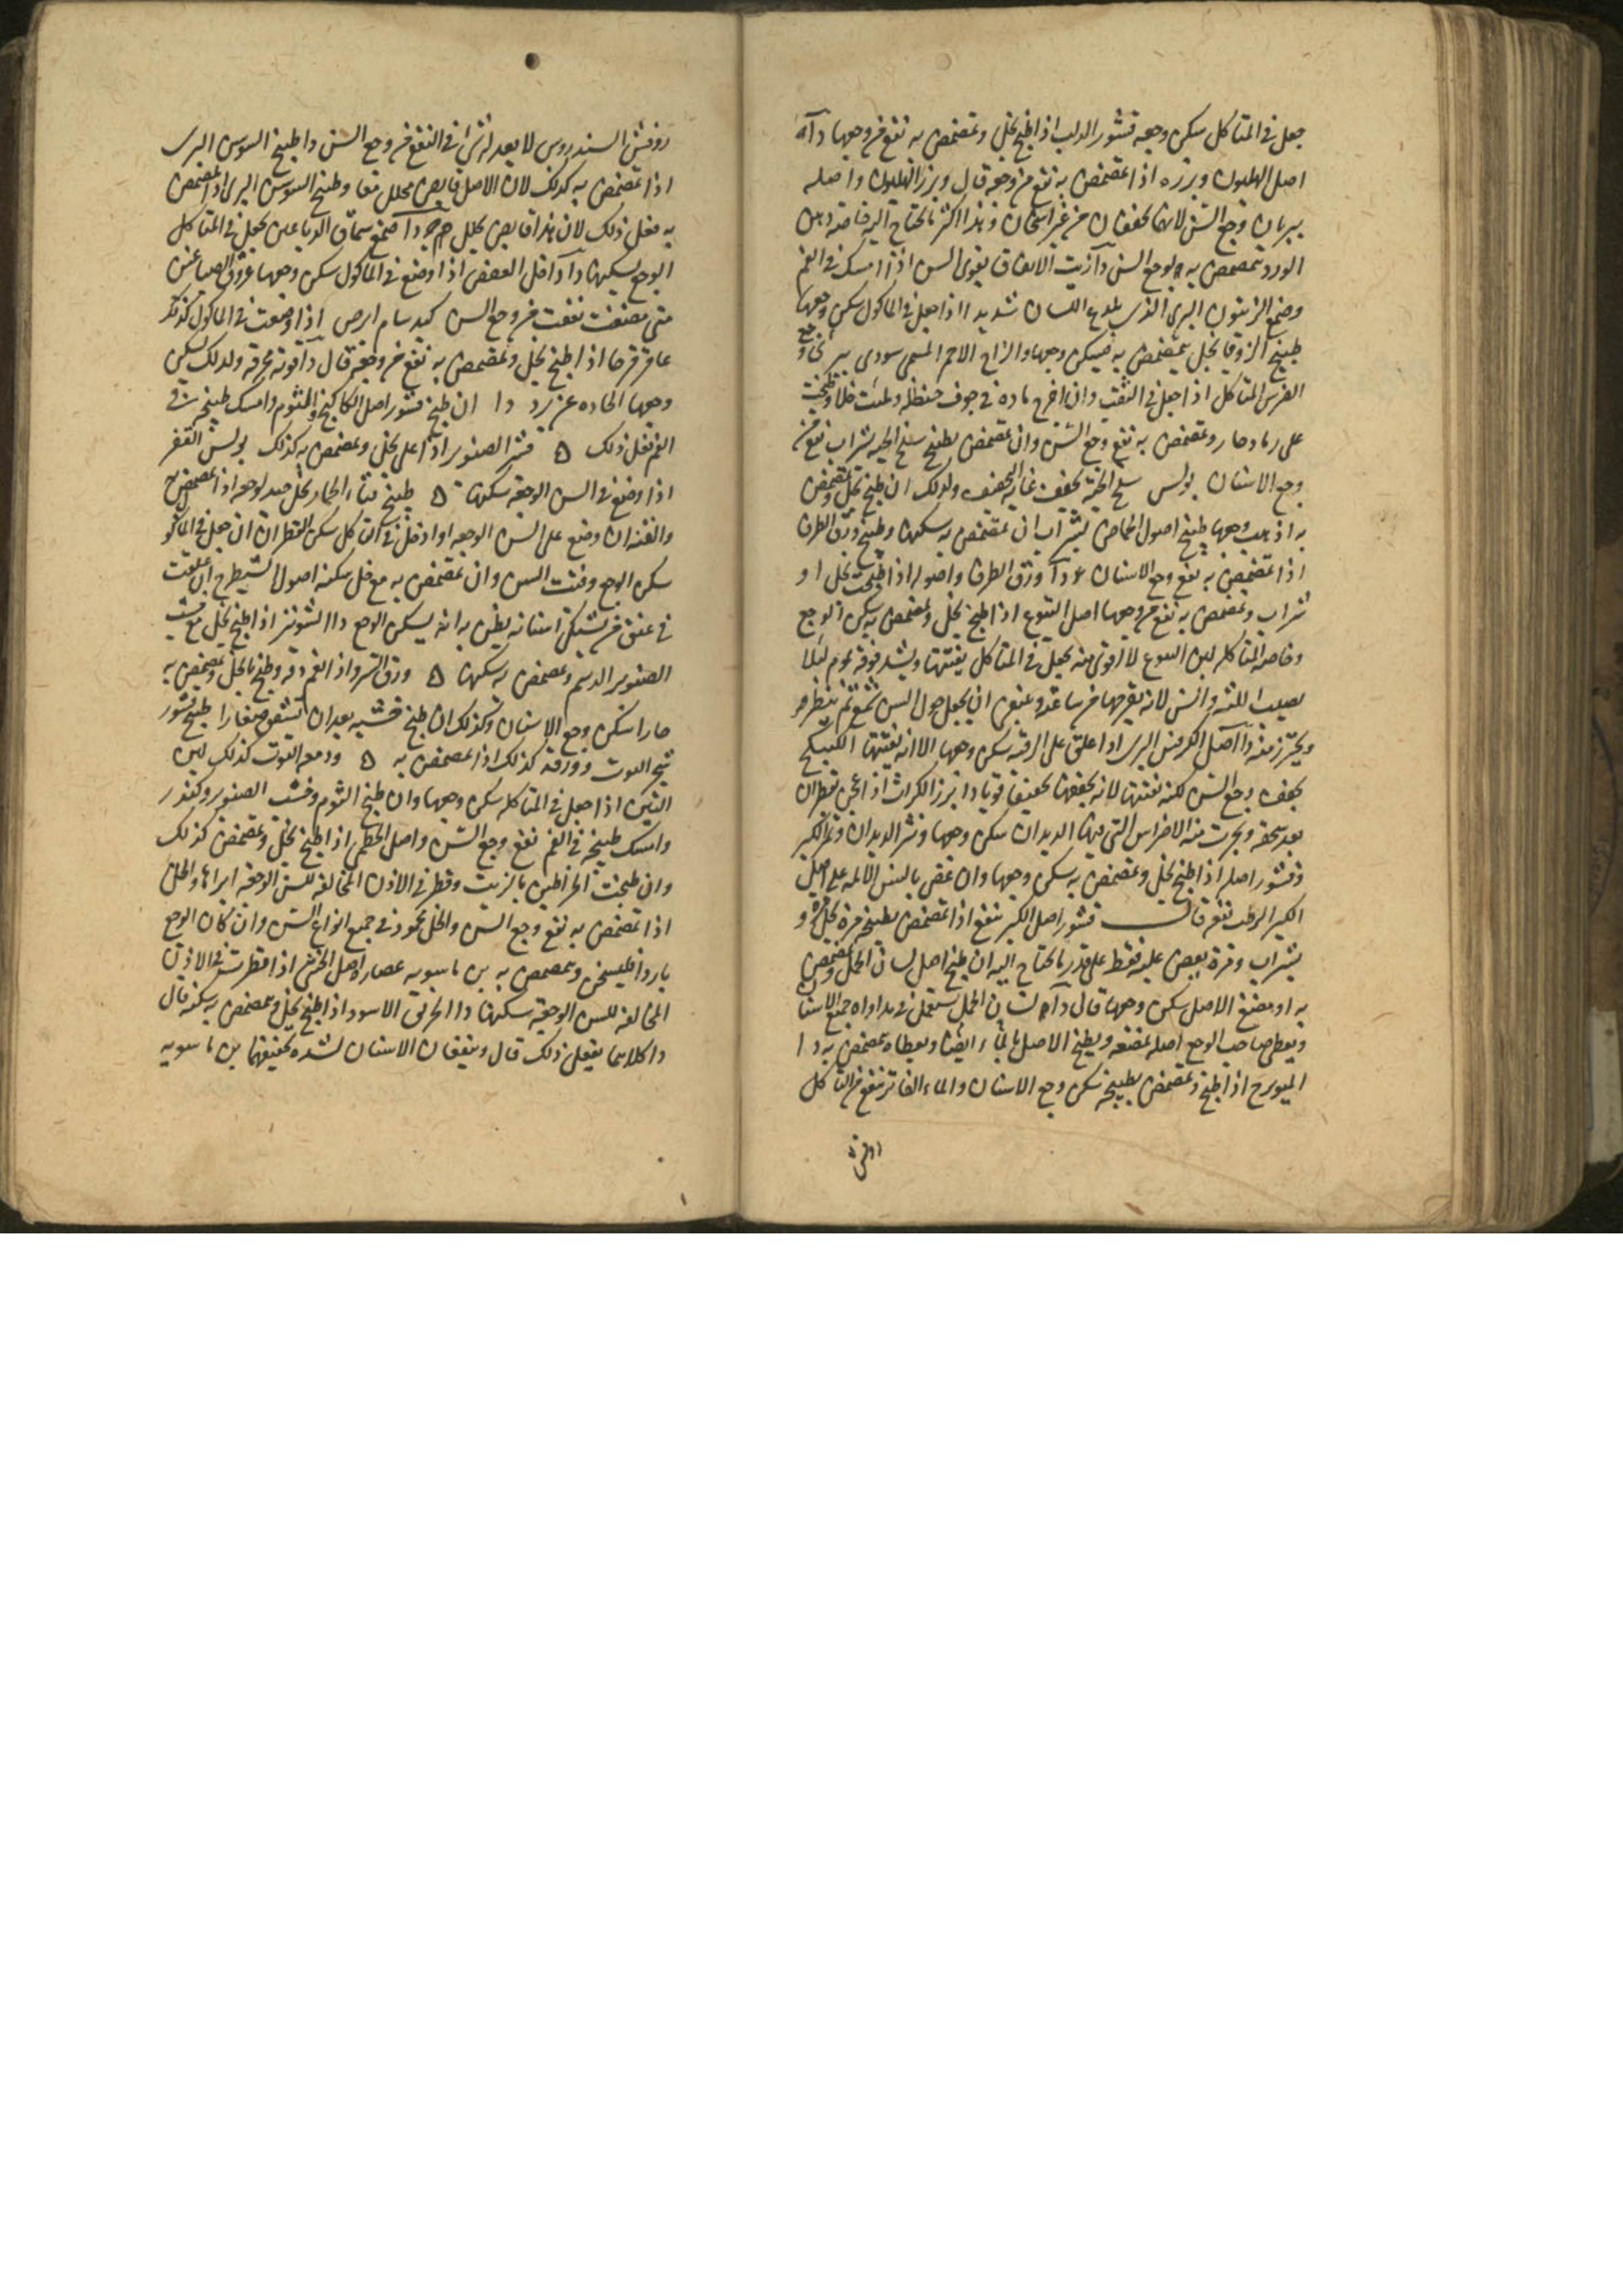 جعل في المتاكل سكن وجعه قشور الدلب اذا طبخ بخل وتمضمض به نفع من وجعها دآ
اصل الهليون وبزره اذا تمضمض به نفع من وجعه قال وبزر الهليون واصله
يبريان وجع السن لانهما يجففان من غير اسخان وهذا اكثر ما يحتاج اليه خاصة دهن
الورد تمضمض به لوجع السن دآ زيت الانفاق يقوى السن اذا امسك في الفم
وصمغ الزيتون البرى الذى يلدع اللسان شديدا اذا جعل في الماكول سكن وجعها
طبيخ الزوفا بخل يتمضمض به فيسكن وجعها والزاج الاحمر المسمى سورى
الضرس المتاكل اذا جعل في الثقب وان اخرج ما في جوف حنظلة وملئت خلا وطبخت
على رماد حار وتمضمض به نفع وجع السن وان تمضمض بطبيخ سلخ الحية بشراب نفع من
وجع الاسنان بولس سلخ الحية يجفف غاية التجفيف ولذلك ان طبخ بخل وتمضمض
به اذهب وجعها طبيخ اصول الحماض بشراب ان تمضمض به سكنها وطبيخ ورق الطرفا
اذا تمضمض به نفع وجع الاسنان دآ ورق الطرفا واصوله اذا طبخت بخل او
شراب وتمضمض به نفع من وجعها اصل اليتوع اذا طبخ بخل وتمضمض به سكن الوجع
وخاصة المتاكل لبن اليتوع لا اقوى منه يجعل في المتاكل يفتتها ويشد فوقه بموم ليلا
يصيب اللثة واللسن لانه يقرحها من ساعته وينبغى ان يجعل حول السن شمع ثم يقطر
ويحترز منه دآ اصل الكرفس البرى اذا علق على الرقبة سكن وجعها الا انه يفتتها الكبيكج
يجفف وجع السن لكنه يفتتها لانه يجففها تجفيفا قويا دا بزر الكراث اذا عجن بقطران
بعد سحقه وبخرت منه الاضراس التي فيها الديدان سكن وجعها ونثر الديدان وثمر الكبر
وقشور اصله اذا طبخ بخل وتمضمض به سكن وجعها وان عض بالسن الالمه على اصل
الكبر الرطب نفع قال قشور اصل الكبر ينفع اذا تمضمض بطبيخه مرة بخل و
بشراب ومرة يعض عليه فقط على قدر ما يحتاج اليه ان طبخ اصل لسان الحمل وتمضمض
به او مضغ الاصل سكن وجعها قال دآ لسان الحمل يستعمل في مداواة جميع الاسنان
ويعطى صاحب الوجع اصله يمضغه ويطبخ الاصل بالماء ايضا ويعطاه يتمضمض به دا
الميويزج اذا طبخ وتمضمض بطبيخه سكن وجع الاسنان والماء الفاتر ينفع من التاكل
روفس السندروس لا يعدله شئ في النفع من وجع السن دا طبيخ السوس البرى
اذا تمضمض به كذلك لان الاصل قابض محلل معا وطبيخ السوس البرى اذا تمضمض
به فعل ذلك لان هذا قابض يحلل دآ صمغ سماق الدباغين يجعل في المتاكل
الوجع ليسكنها دآ داخل العفص اذا وضع في الماكول سكن وجعها عروق الصباغين
متى مضغت نفعت من وجع السن كبد سام ابرص اذا وضعت في الماكول كذلك
عاقرقرحا اذا طبخ بخل وتمضمض به نفع من وجعه قال دآ قوته محرقة ولذلك يسكن
وجعها الحادث عن برد دا ان طبخ قشور اصل الكاكنج والثوم وامسك طبيخه في
الفم فعل ذلك ه قشر الصنوبر اذا اغلى بخل وتمضمض به كذلك بولس القفر
اذا وضع في السن الوجعة سكنها ه طبيخ قثاء الحمار بخل جيد لوجعه اذا تمضمض به
والقنه ان وضع على السن الوجعه او ادخل في التاكل سكن القطران ان جعل في الماكول
سكن الوجع وفتت السن وان تمضمض به مع خل سكنه اصول الشيطرج ان علقت
في عنق من يشتكى اسنانه يظن به انه يسكن الوجع دا الشونيز اذا طبخ بخل مع خشب
الصنوبر الدسم وتمضمض به سكنها ه ورق السرو اذا انعم دقه وطبخ بالخل وتمضمض به
حارا سكن وجع الاسنان وكذلك ان طبخ خشبه بعد ان يشقق صغارا طبيخ قشور
شجر التوت وورقه كذلك اذا تمضمض به ه ودمعة التوت كذلك لبن
التين اذا جعل في المتاكله سكن وجعها وان طبخ الثوم وخشب الصنوبر وكندر
وامسك طبيخه في الفم نفع وجع السن واصل الخطمى اذا طبخ بخل وتمضمض كذلك
وان طبخت الخراطين بالزيت وقطر في الاذن المخالفة للسن الوجعه ابراها والخل
اذا تمضمض به نفع وجع السن والخل محمود في جميع انواع السن وان كان الوجع
باردا فليسخن ويتمضمض به بن ماسويه عصارة اصل الخنثى اذا قطرت في الاذن
المخالفه للسن الوجعة سكنها دا الخربق الاسود اذا طبخ بخل وتمضمض به سكنه قال
دا كلاهما يفعل ذلك قال وينفعان الاسنان لشدة تجفيفهما بن ماسويه